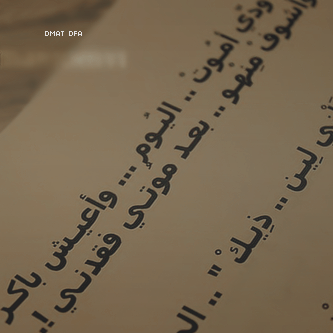 DMAT DFA
ودّي أموت .. اليوم ... وأعيش باكر
واشوف منهو .. بعد موتي فقدني !!
لين .. ذيك " .. ال